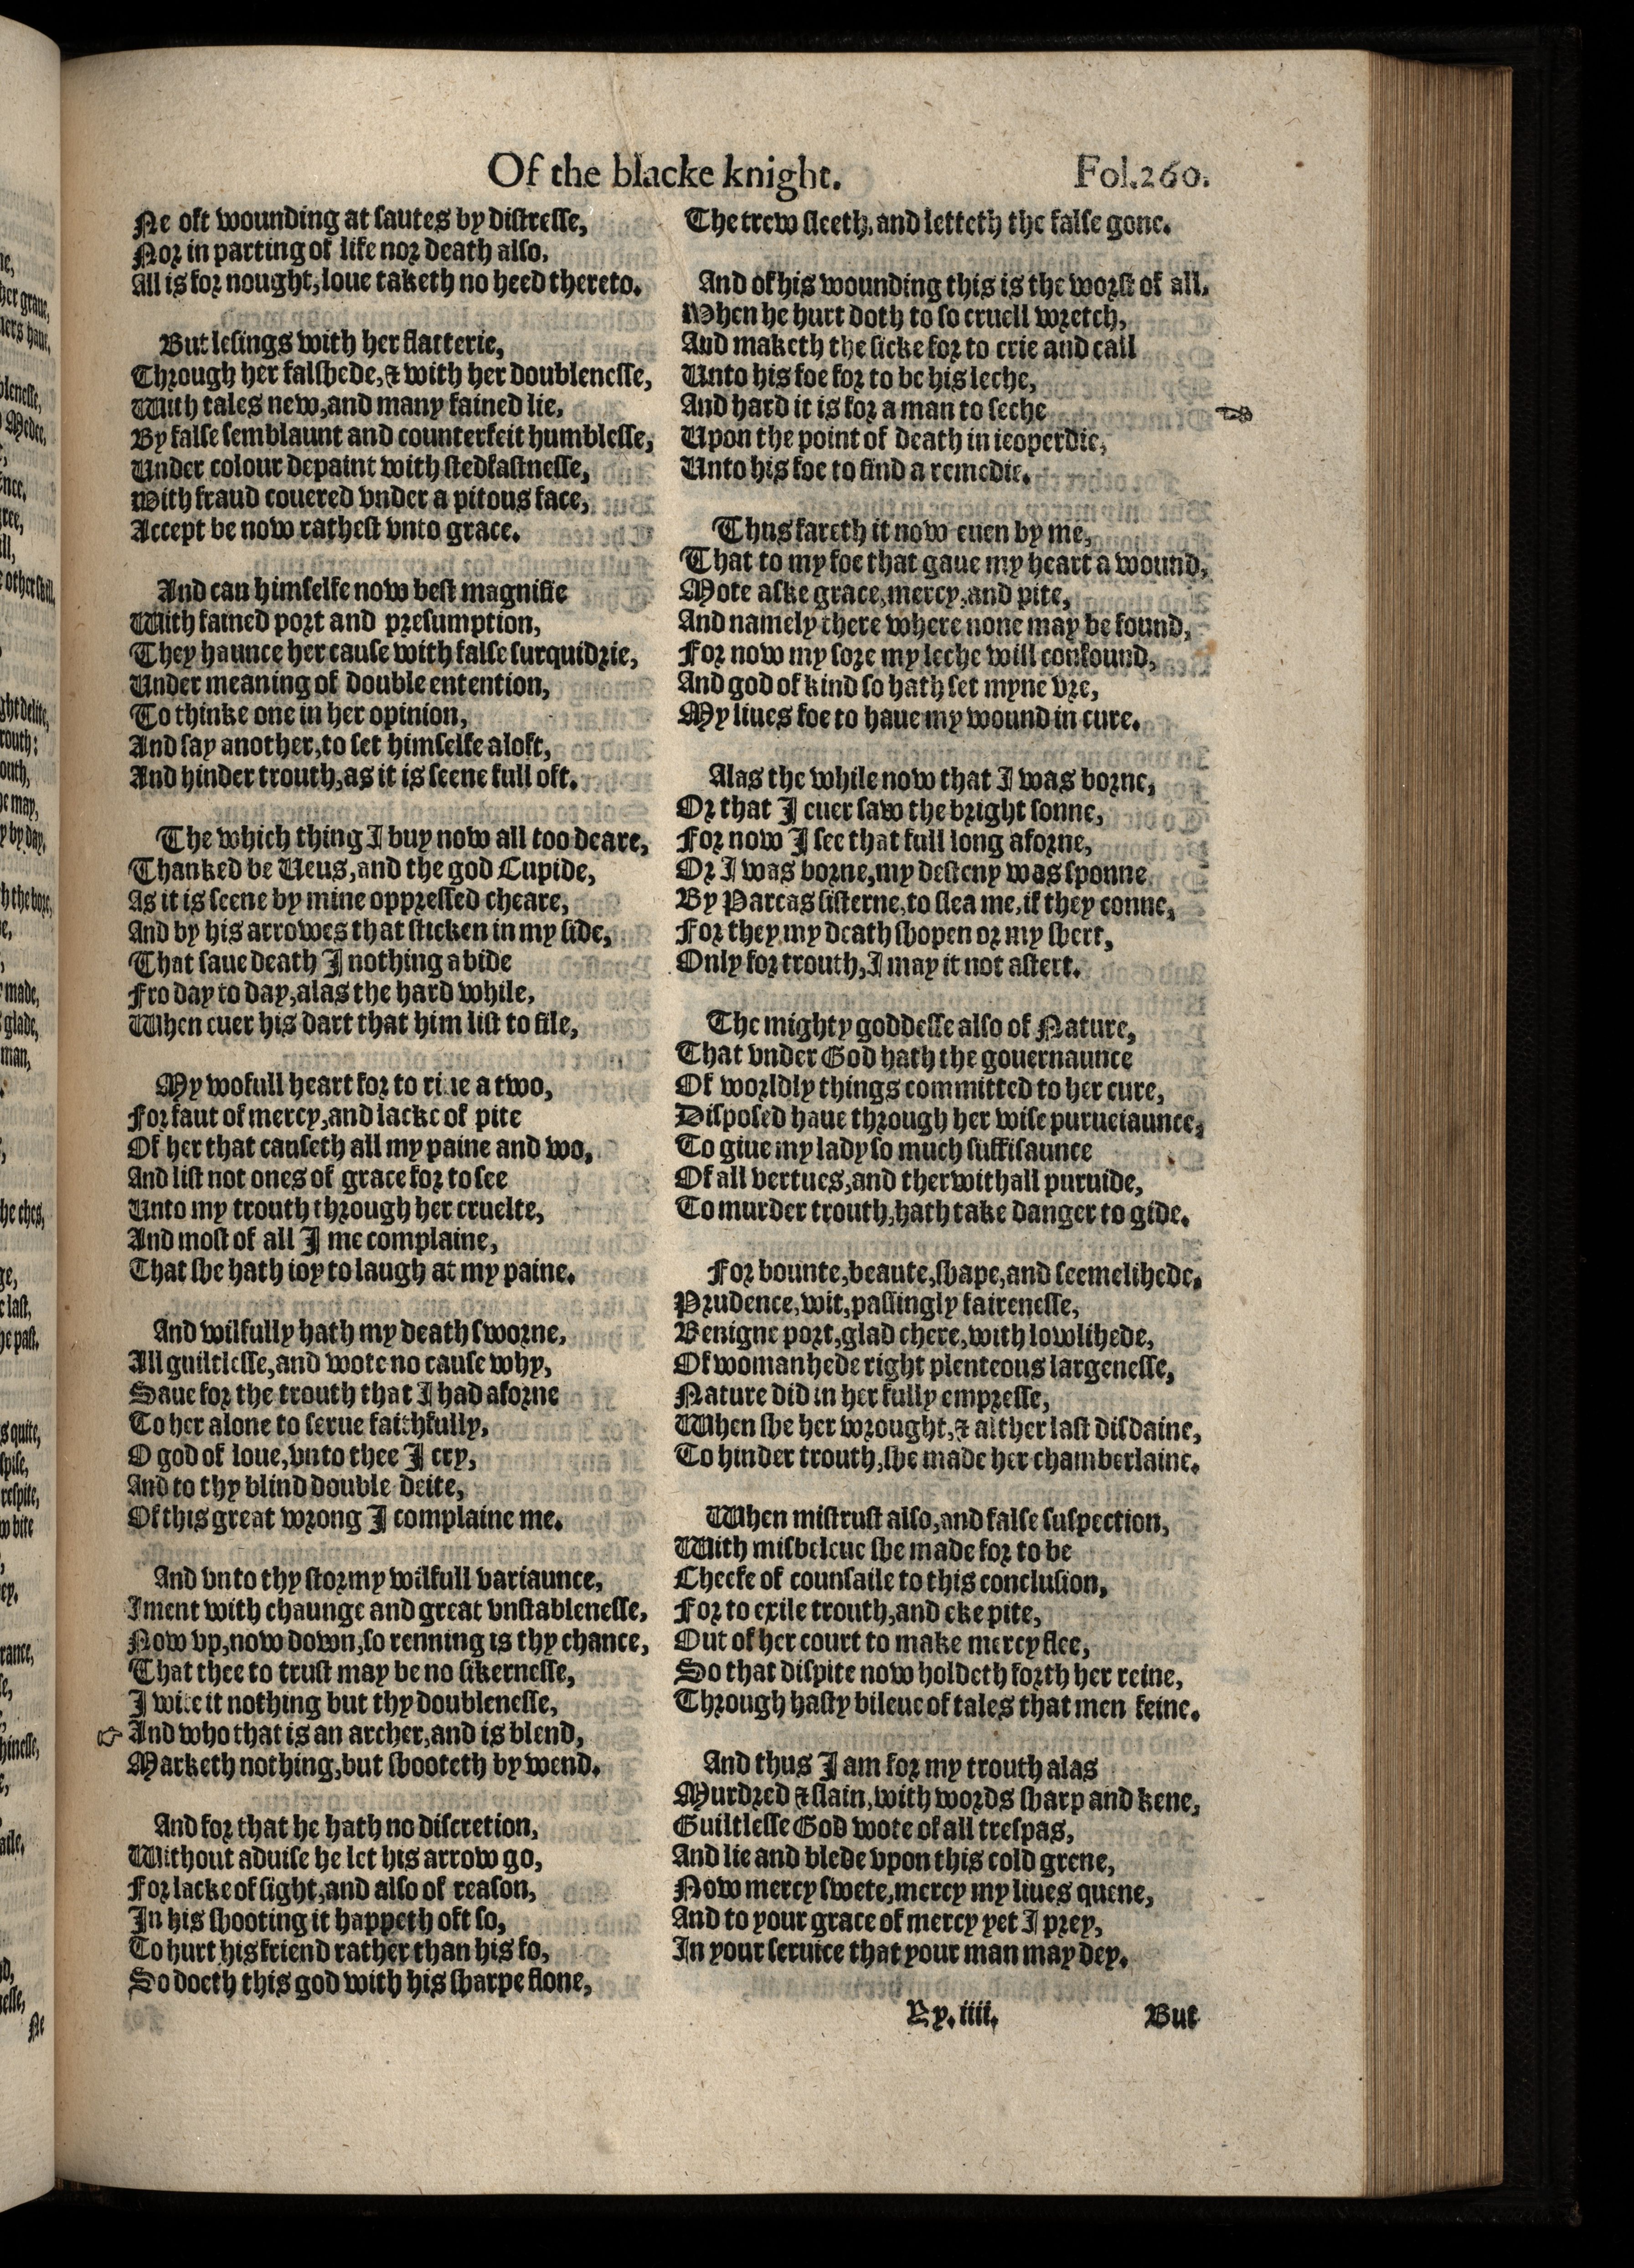 Of the blacke knight. Fol.260.
Ne oft wounding at sautes by distresse,
Nor in parting of life nor death also,
All is for nought, loue taketh no heed thereto.
But lesings with her flatterie,
Through her falshede, & with her doublenesse,
With tales new, and many fained lie,
By false semblaunt and counterfeit humblesse,
Under colour depaint with stedfastnesse,
With fraud couered vnder a pitous face,
Accept be now rathest vnto grace.
And can himselfe now best magnifie
With fained port and presumption,
They haunce her cause with false surquidrie,
Under meaning of double entention,
To thinke one in her opinion,
And say another, to set himselfe aloft,
And hinder trouth, as it is seene full oft.
The which thing I buy now all too deare,
Thanked be Ueus, and the god Cupide,
As it is seene by mine oppressed cheare,
And by his arrowes that sticken in my side,
That saue death I nothing abide
Fro day to day, alas the hard while,
When euer his dart that him list to file,
My wofull heart for to riue a two,
For faut of mercy, and lacke of pite
Of her that causeth all my paine and wo,
And list not ones of grace for to see
Unto my trouth through her cruelte,
And most of all I me complaine,
That she hath ioy to laugh at my paine.
And wilfully hath my death sworne,
All guiltlesse, and wote no cause why,
Saue for the trouth that I had aforne
To her alone to serue faithfully,
O god of loue, vnto thee I cry,
And to thy blind double deite,
Of this great wrong I complaine me.
And vnto thy stormy wilfull variaunce,
Iment with chaunge and great vnstablenesse,
Now vp, now down, so renning is thy chance,
That thee to trust may be no sikernesse,
I wite it nothing but thy doublenesse,
☞ And who that is an archer, and is blend,
Marketh nothing, but shooteth by wend.
And for that he hath no discretion,
Without aduise he let his arrow go,
For lacke of sight, and also of reason,
In his shooting it happeth oft so,
To hurt his friend rather than his fo,
So doeth this god with his sharpe flone,
The trew sleeth, and letteth the false gone.
And of his wounding this is the worst of all.
When he hurt doth to so cruell wretch,
And maketh the sicke for to crie and call
Unto his foe for to be his leche,
And hard it is for a man to seche ☜
Upon the point of death in ieoperdie,
Unto his foe to find a remedie.
Thus fareth it now euen by me,
That to my foe that gaue my heart a wound,
Mote aske grace, mercy, and pite,
And namely there where none may be found,
For now my sore my leche will confound,
And god of kind so hath set myne vre,
My liues foe to haue my wound in cure.
Alas the while now that I was borne,
Or that I euer saw the bright sonne,
For now I see that full long aforne,
Or I was borne, my desteny was sponne
By Parcas sisterne, to slea me, if they conne,
For they my death shopen or my shert,
Only for trouth, I may it not astert.
The mighty goddesse also of Nature,
That vnder God hath the gouernaunce
Of worldly things committed to her cure,
Disposed haue through her wise purueiaunce,
To giue my lady so much suffisaunce
Of all vertues, and therwithall puruide,
To murder trouth, hath take danger to gide.
For bounte, beaute, shape, and seemelihede,
Prudence, wit, passingly fairenesse,
Benigne port, glad chere, with lowlihede,
Of womanhede right plenteous largenesse,
Nature did in her fully empresse,
When she her wrought, & alther last disdaine,
To hinder trouth, she made her chamberlaine.
When mistrust also, and false suspection,
With misbeleue she made for to be
Cheefe of counsaile to this conclusion,
For to exile trouth, and eke pite,
Out of her court to make mercy flee,
So that dispite now holdeth forth her reine,
Through hasty bileue of tales that men feine.
And thus I am for my trouth alas
Murdred & slain, with words sharp and kene,
Guiltlesse God wote of all trespas,
And lie and blede vpon this cold grene,
Now mercy swete, mercy my liues quene,
And to your grace of mercy yet I prey,
In your seruice that your man may dey.
Yy.iiii. But